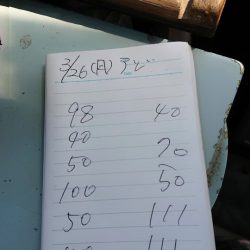 3/26(月)
98 40
90
50 70
100 50
50 111
111